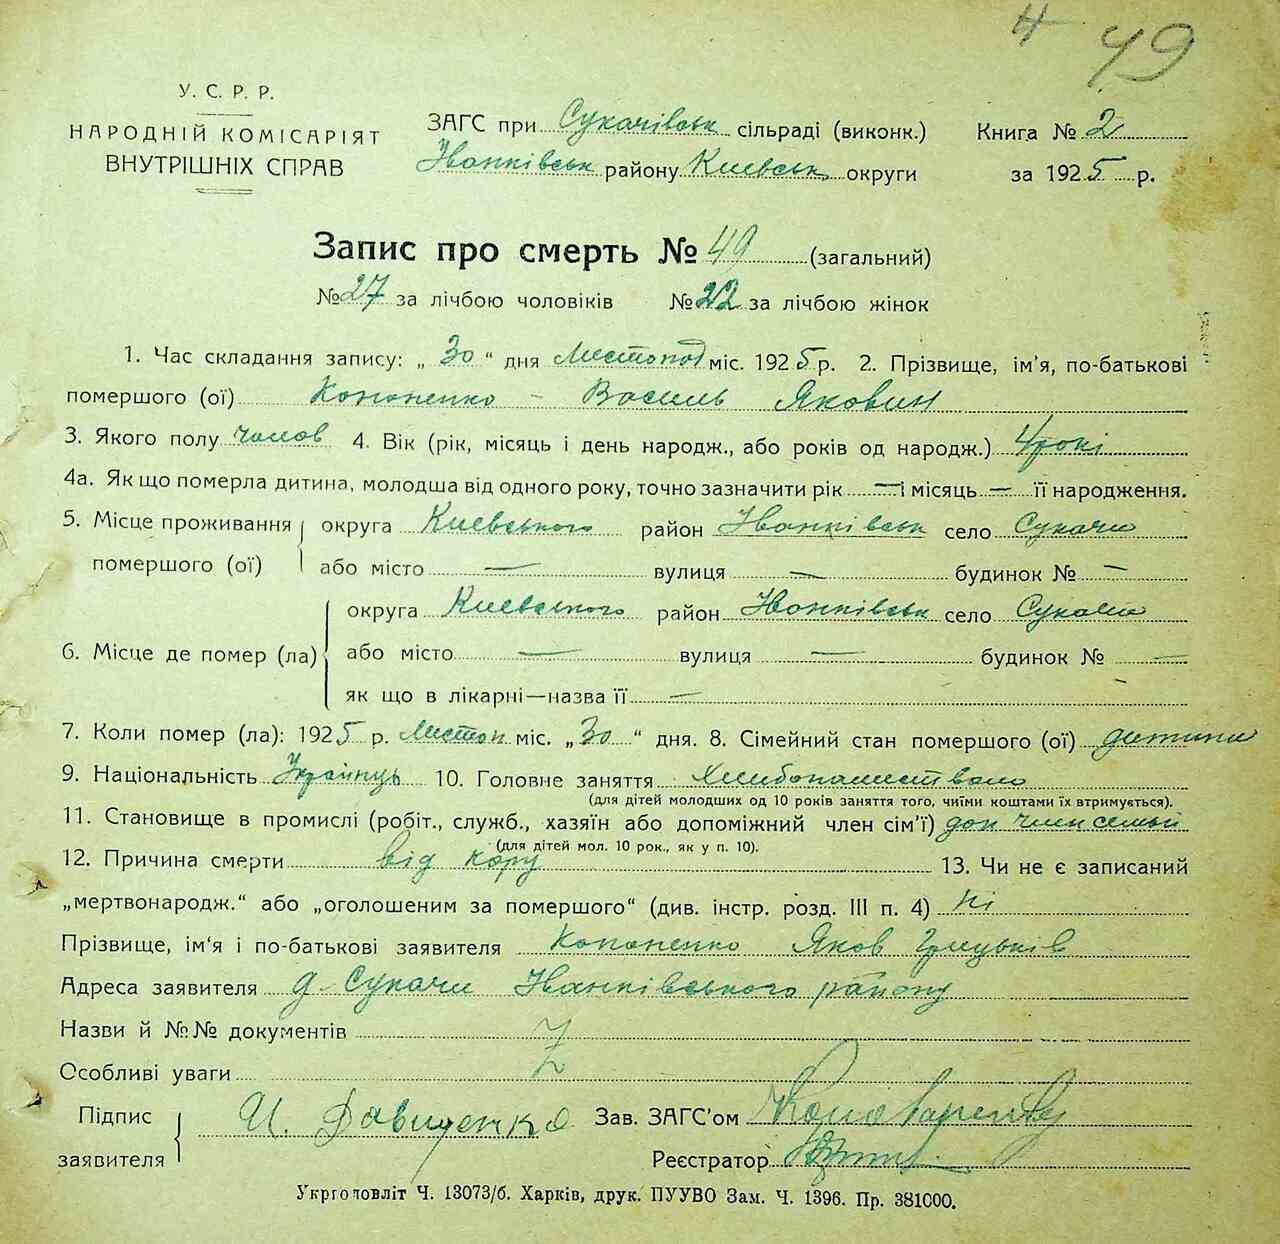 н 49
У. С. Р. Р.
НАРОДНІЙ КОМІСАРІЯТ
ВНУТРІШНІХ СПРАВ
ЗАГС при Сукачівськ сільраді (виконк.)
Іванківськ району Киевськ округи
Книга № 2
за 1925 р.
Запис про смерть № 49 (загальний)
№ 27 за лічбою чоловіків № 22 за лічбою жінок
1. Час складання запису: „ 30 “ дня Листопад міс. 1925 р. 2. Прізвище, ім'я, по-батькові
помершого (ої) Кононенко - Василь Яковин
3. Якого полу чолов 4. Вік (рік, місяць і день народж., або років од народж.) 4 рокі
4а. Як що померла дитина, молодша від одного року, точно зазначити рік — і місяць — її народження.
5. Місце проживання помершого (ої) округа Киевського район Іванківськ село Сукачи
або місто — вулиця — будинок № —
6. Місце де помер (ла) округа Киевського район Іванківськ село Сукачи
або місто — вулиця — будинок № —
як що в лікарні—назва її —
7. Коли помер (ла): 1925 р. Листоп міс. „ 30 “ дня. 8. Сімейний стан помершого (ої) дитина
9. Національність Українць 10. Головне заняття Хлибопашество
(для дітей молодших од 10 років заняття того, чиїми коштами їх втримується).
11. Становище в промислі (робіт., служб., хазяїн або допоміжний член сім'ї) доп член семьи
(для дітей мол. 10 рок., як у п. 10).
12. Причина смерти від кору 13. Чи не є записаний
„мертвонародж.“ або „оголошеним за помершого“ (див. інстр. розд. III п. 4) Ні
Прізвище, ім'я і по-батькові заявителя Кононенко Яков Грицьків
Адреса заявителя д Сукачи Іванківського району
Назви й №№ документів
Особливі уваги
Підпис заявителя И. Давиденко Зав. ЗАГС'ом
Реєстратор
Укрголовліт Ч. 13073/б. Харків, друк. ПУУВО Зам. Ч. 1396. Пр. 381000.